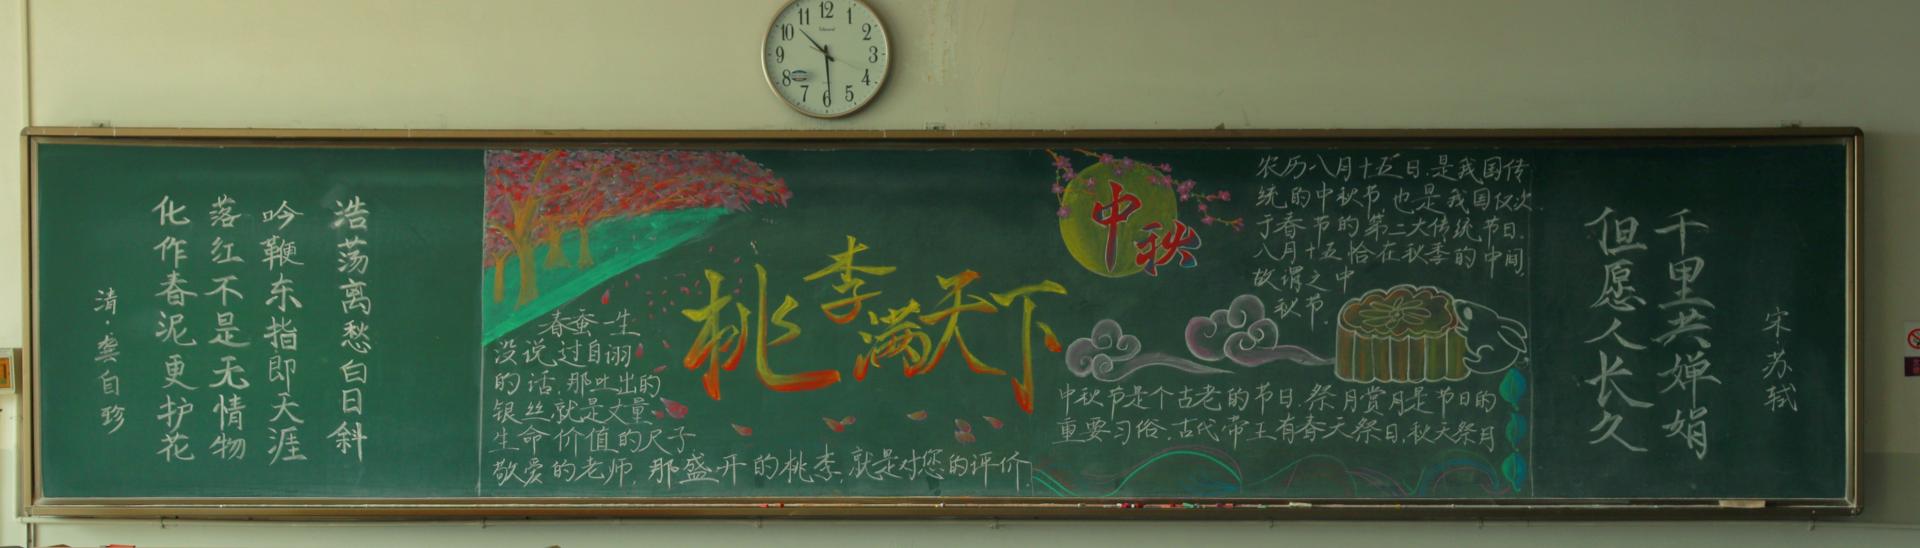 浩荡离愁白日斜
吟鞭东指即天涯
落红不是无情物
化作春泥更护花
清·龚自珍
桃李满天下
春蚕一生
没说过自诩
的话,那吐出的
银丝,就是丈量
生命价值的尺子
敬爱的老师,那盛开的桃李,就是对您的评价
中秋
农历八月十五日,是我国传
统的中秋节,也是我国仅次
于春节的第二大传统节日,
八月十五恰在秋季的中间,
故谓之中
秋节。
中秋节是个古老的节日,祭月赏月是节日的
重要习俗,古代帝王有春天祭日,秋天祭月
但愿人长久
千里共婵娟
宋·苏轼
11 12 1
10 2
9 3
8 4
7 6 5